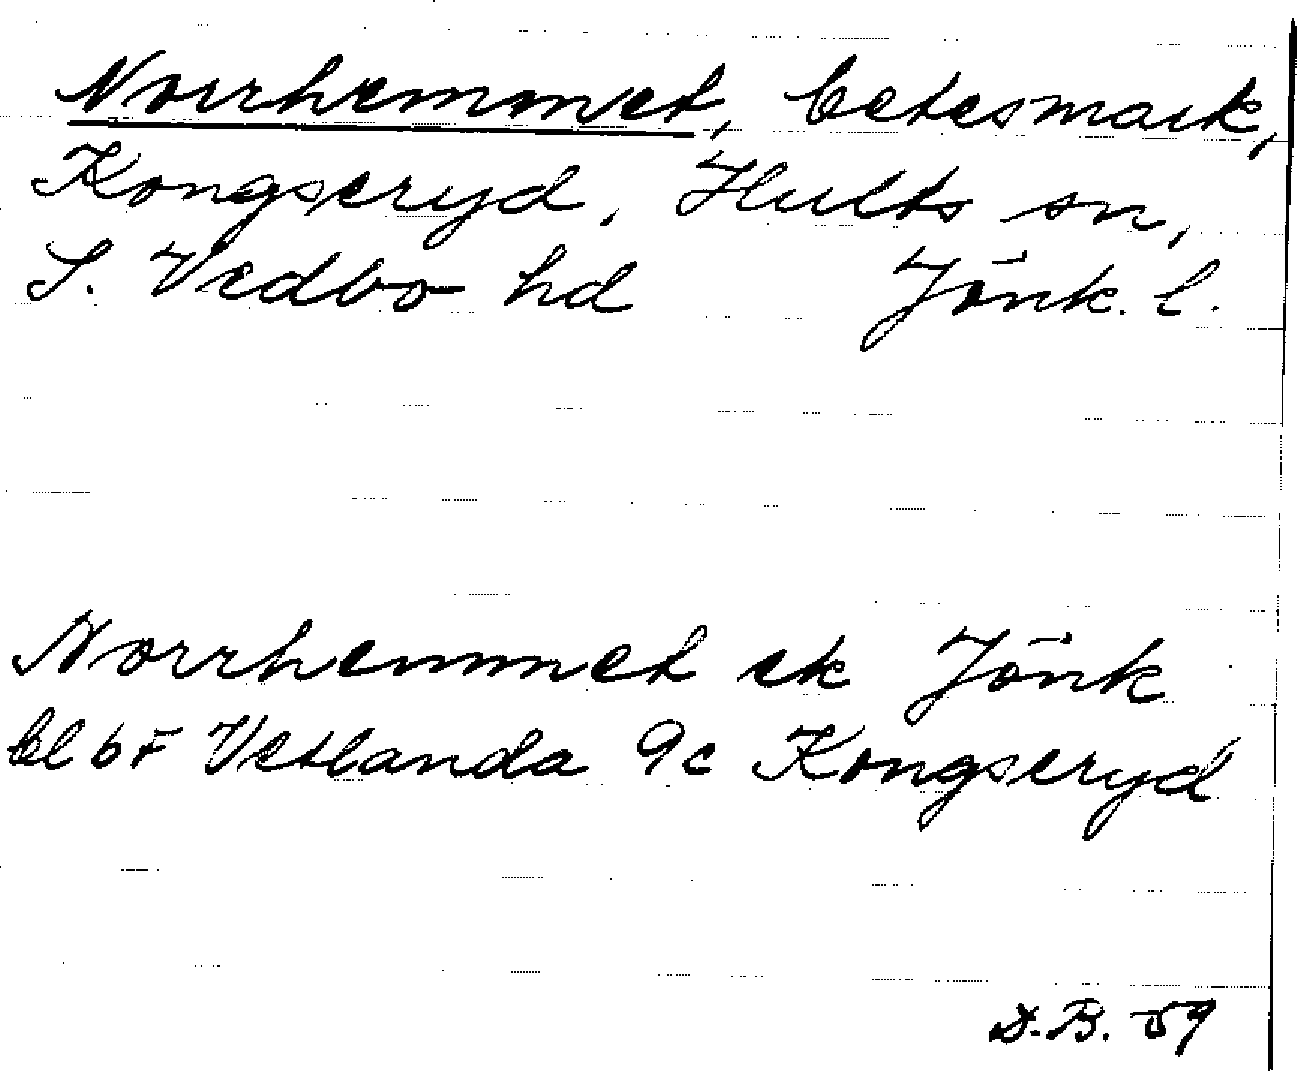 Norrhemmet, betesmark,
Kongseryd, Hults sn,
S. Vedbo hd Jönk. l.
Norrhemmet ek Jönk
bl 6F Vetlanda 9c Kongseryd
D.B. -59